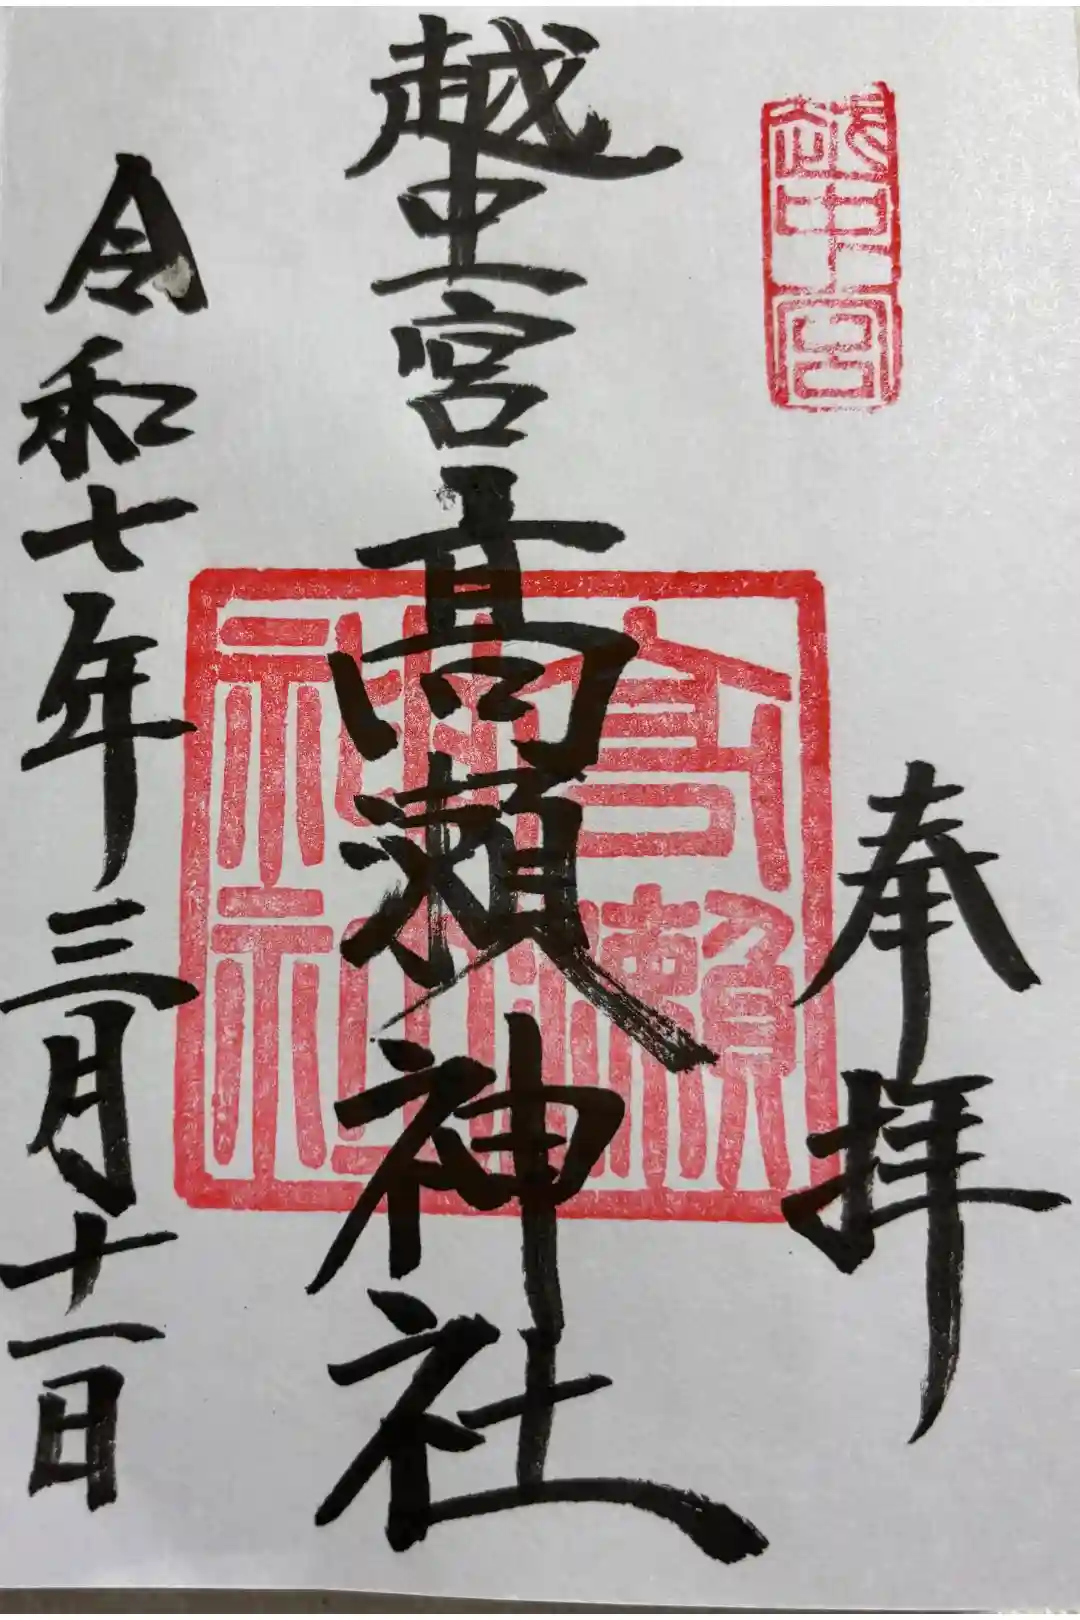 越中一宮
奉拝
越中一宮髙瀬神社
高瀬
神社
令和七年三月十一日